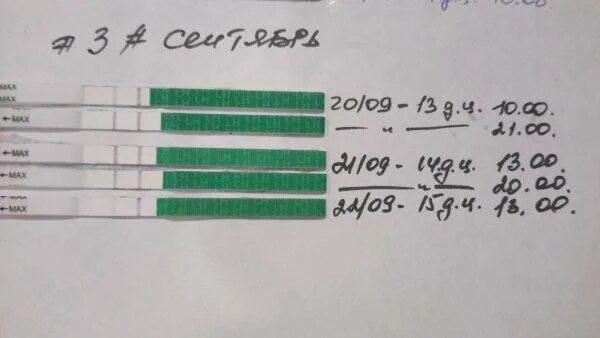 # 3 # СЕНТЯБРЬ
MAX
MAX
20/09 - 13 д.ц. 10.00.
←MAX
— и — 21.00.
←MAX
21/09 - 14 д.ц. 13.00.
←MAX
— и — 20.00.
←MAX
22/09 - 15 д.ц. 13.00.